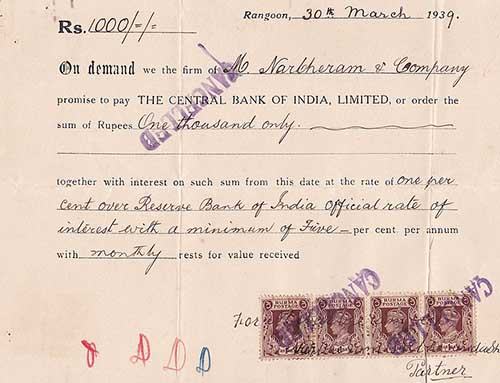 Rangoon, 30th March 1939.
Rs. 1000/-/-
On demand we the firm of M. Narbheram & Company
CANCELLED
promise to pay THE CENTRAL BANK OF INDIA, LIMITED, or order the
sum of Rupees One thousand only.
together with interest on such sum from this date at the rate of one per
cent over Reserve Bank of India Official rate of
interest with a minimum of Five per cent. per annum
with monthly rests for value received
For
BURMA POSTAGE BURMA POSTAGE BURMA POSTAGE BURMA POSTAGE
Partner